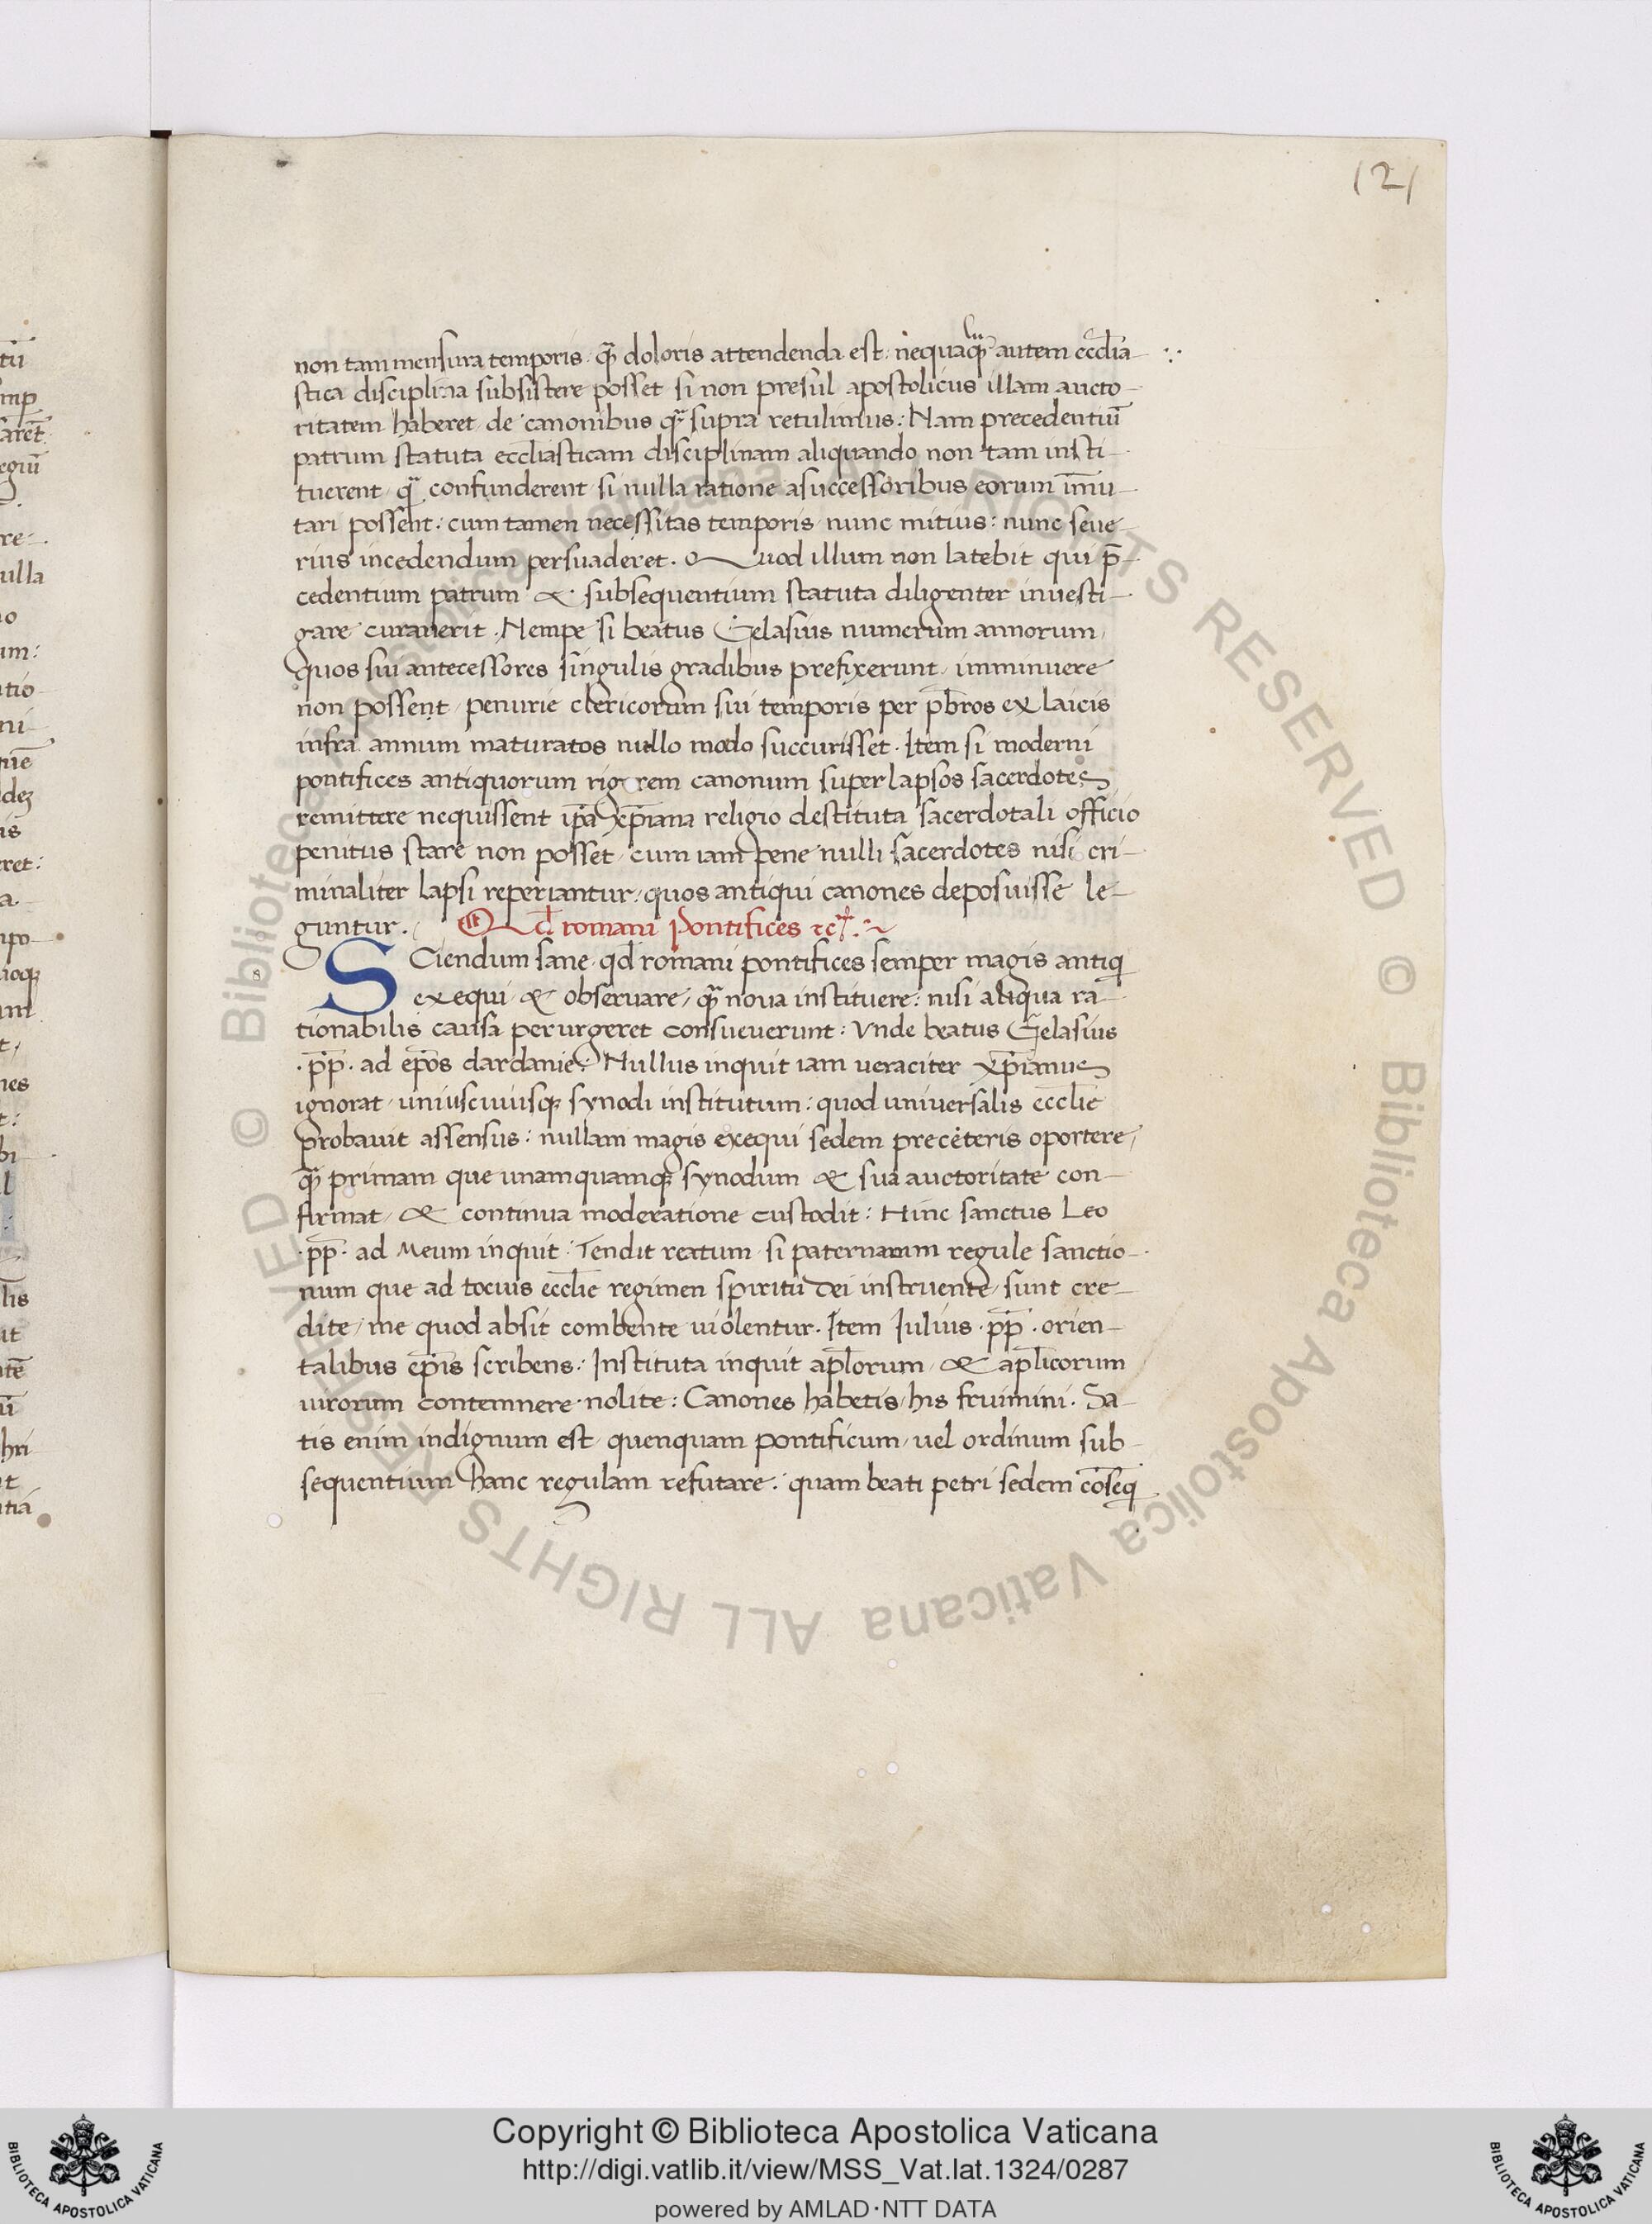 121
non tam mensura temporis. q̃ doloris attendenda est. nequaq̃ autem ecclia-
stica disciplina subsistere posset si non presul apostolicus illam aucto-
ritatem haberet de canonibus q̃ supra retulimus: Nam precedentiũ
patrum statuta eccliasticam disciplinam aliquando non tam insti-
tuerent q̃ confunderent si nulla ratione asuccessoribus eorum im̃u-
tari possent: cum tamen necessitas temporis nunc mitius: nunc seue-
rius incedendum persuaderet. Quod illum non latebit qui p̃-
cedentium patrum & subsequentium statuta diligenter inuesti-
gare curauerit. Nempe si beatus Gelasius numerum annorum
quos sui antecessores singulis gradibus prefixerunt, imminuere
non possent, penurie clericorum sui temporis per p̃bros ex laicis
infra annum maturatos nullo modo succurisset. Item si moderni
pontifices antiquorum rigorem canonum super lapsos sacerdotes
remittere nequissent ip̃a xp̃iana religio destituta sacerdotali officio
penitus stare non posset, cum iam pene nulli sacerdotes nisi cri-
minaliter lapsi reperiantur, quos antiqui canones deposuisse le-
guntur. Qd̃ romani pontifices
SCiendum sane qd̃ romani pontifices semper magis antiq
exequi & obseruare, q̃ noua instituere: nisi aliqua ra-
tionabilis causa perurgeret consueuerunt: Vnde beatus Gelasius
.pp̃. ad ep̃os dardanie: Nullus inquit iam ueraciter xp̃ianus
ignorat uniuscuiusq; synodi institutum: quod uniuersalis ecclie
probauit assensus: nullam magis exequi sedem preceteris oportere,
q̃ primam que unamquamq; synodum & sua auctoritate con-
firmat, & continua moderatione custodit: Hinc sanctus Leo
.pp̃. ad Meum inquit: Tendit reatum si paternarum regule sanctio-
num que ad tocius ecclie regimen spiritu Dei instruente sunt cre-
dite, me quod absit combente uiolentur. Item Iulius .pp̃. orien-
talibus ep̃is scribens: Instituta inquit apl̃orum, & apl̃icorum
uirorum contemnere nolite: Canones habetis, his fruimini. Sa-
tis enim indignum est quenquam pontificum, uel ordinum sub-
sequentium hanc regulam refutare: quam beati petri sedem cõseq
Copyright © Biblioteca Apostolica Vaticana
http://digi.vatlib.it/view/MSS_Vat.lat.1324/0287
powered by AMLAD·NTT DATA
BIBLIOTECA APOSTOLICA VATICANA
BIBLIOTECA APOSTOLICA VATICANA
© Biblioteca Apostolica Vaticana ALL RIGHTS RESERVED © Biblioteca Apostolica Vaticana ALL RIGHTS RESERVED